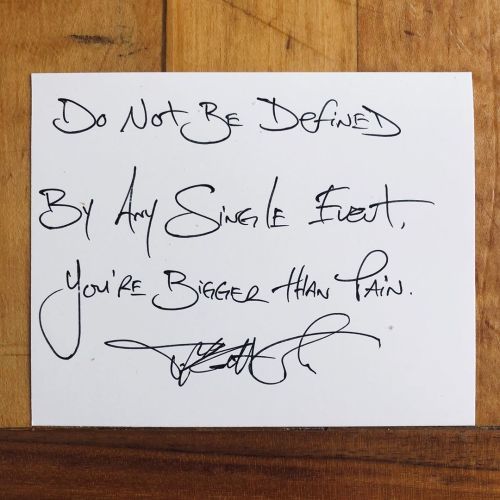 Do Not Be Defined
By Any Single Event,
You're Bigger than Pain.